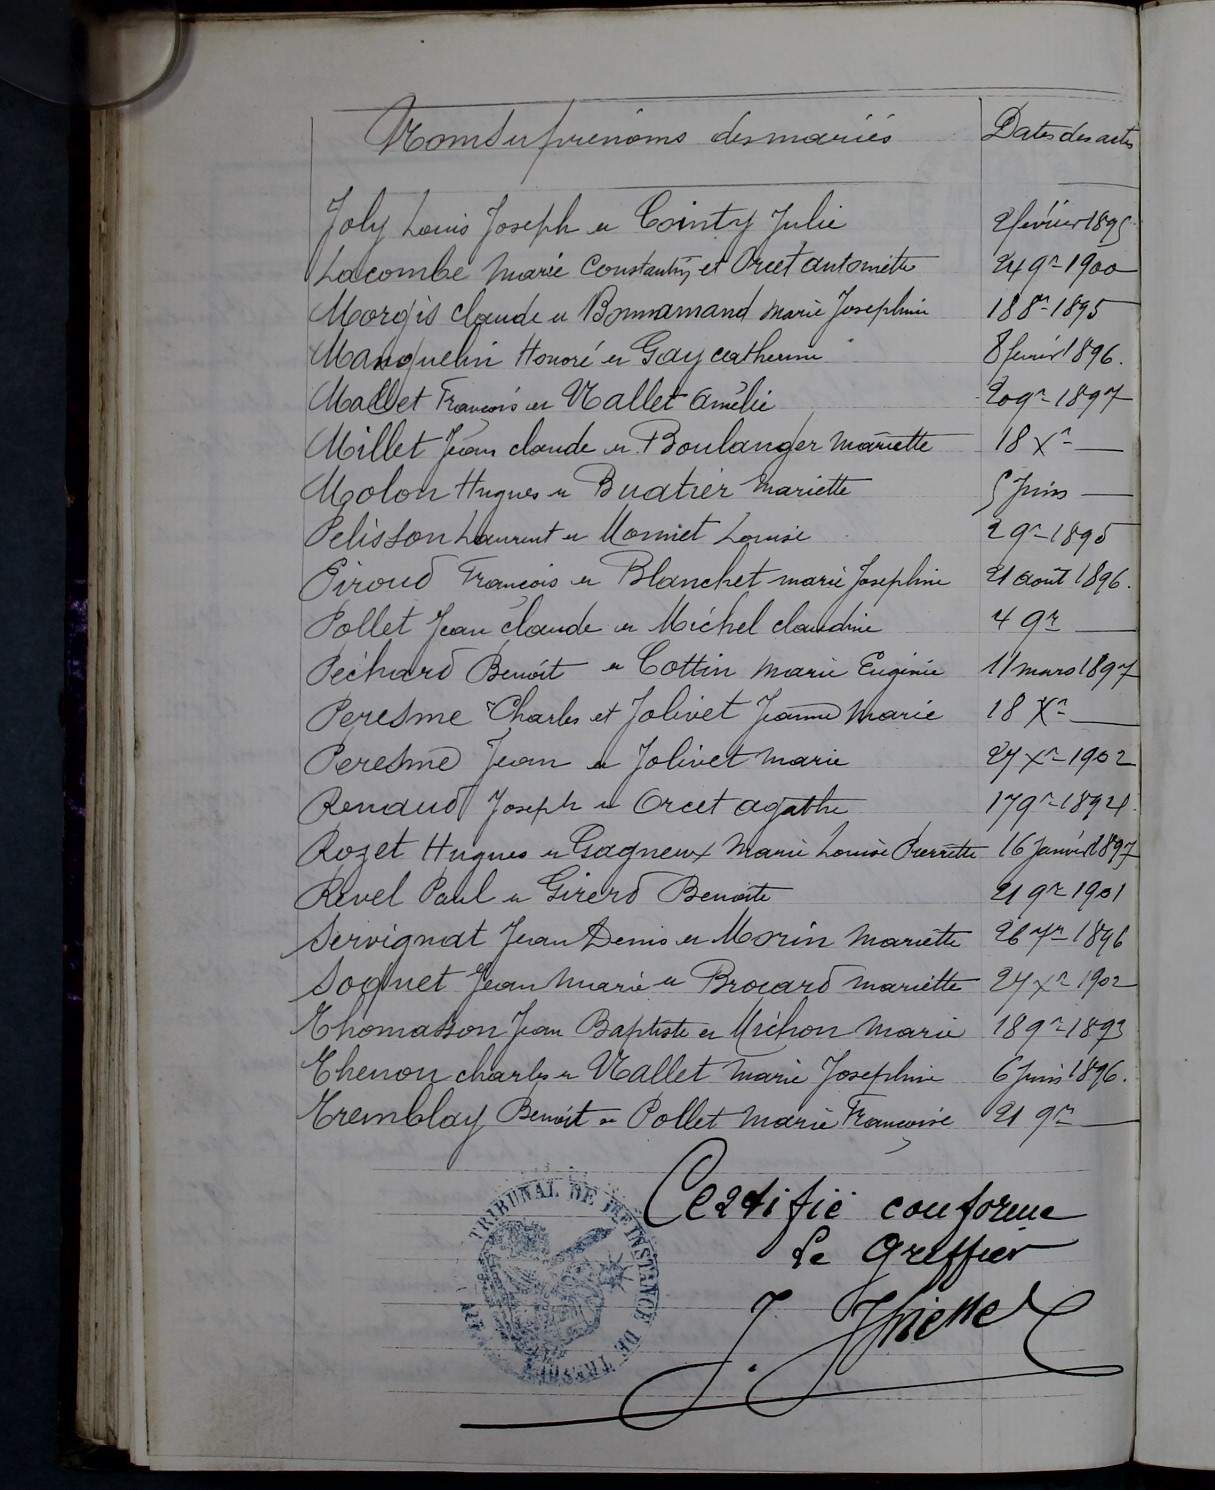 Noms et prénoms des mariés Dates des actes
Joly Louis Joseph et Cointy Julie 2 février 1895
Lacombe Marie Constantin et Orcet Antoinette 24 9re 1900
Morgis Claude et Bonnamand Marie Josephine 18 8re 1895
Manquelin Honoré et Gay Catherine 8 février 1896.
Mallet François et Mallet Amélie 20 9re 1897
Millet Jean Claude et Boulanger Mariette 18 Xre —
Molon Hugues et Buatier Mariette 5 Juin —
Pelisson Laurent et Monnet Louise 2 9re 1895
Piroud François et Blanchet Marie Josephine 21 août 1896.
Pollet Jean Claude et Michel Claudine 4 9re —
Pechard Benoît et Cottin Marie Eugénie 11 mars 1897
Peresme Charles et Jolivet Jeanne Marie 18 Xre —
Peresme Jean et Jolivet Marie 27 Xre 1902
Renaud Joseph et Orcet Agathe 17 9re 1894.
Rozet Hugues et Gagneux Marie Louise Pierrette 16 Janvier 1897
Revel Paul et Girerd Benoite 21 9re 1901
Servignat Jean Denis et Morin Mariette 26 7re 1896
Soquet Jean Marie et Brocard Mariette 27 Xre 1902
Thomasson Jean Baptiste et Michon Marie 18 9re 1893
Thenon Charles et Mallet Marie Josephine 6 Juin 1896.
Tremblay Benoît et Pollet Marie Françoise 21 9re —
Certifié conforme
Le Greffier
TRIBUNAL DE 1RE INSTANCE DE TRÉVOUX